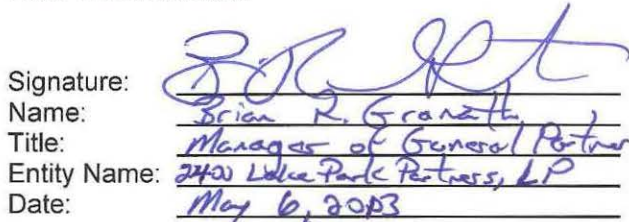 Signature:
Name: Brian R. Granath
Title: Manager of General Partner
Entity Name: 2400 Lake Park Partners, LP
Date: May 6, 2013